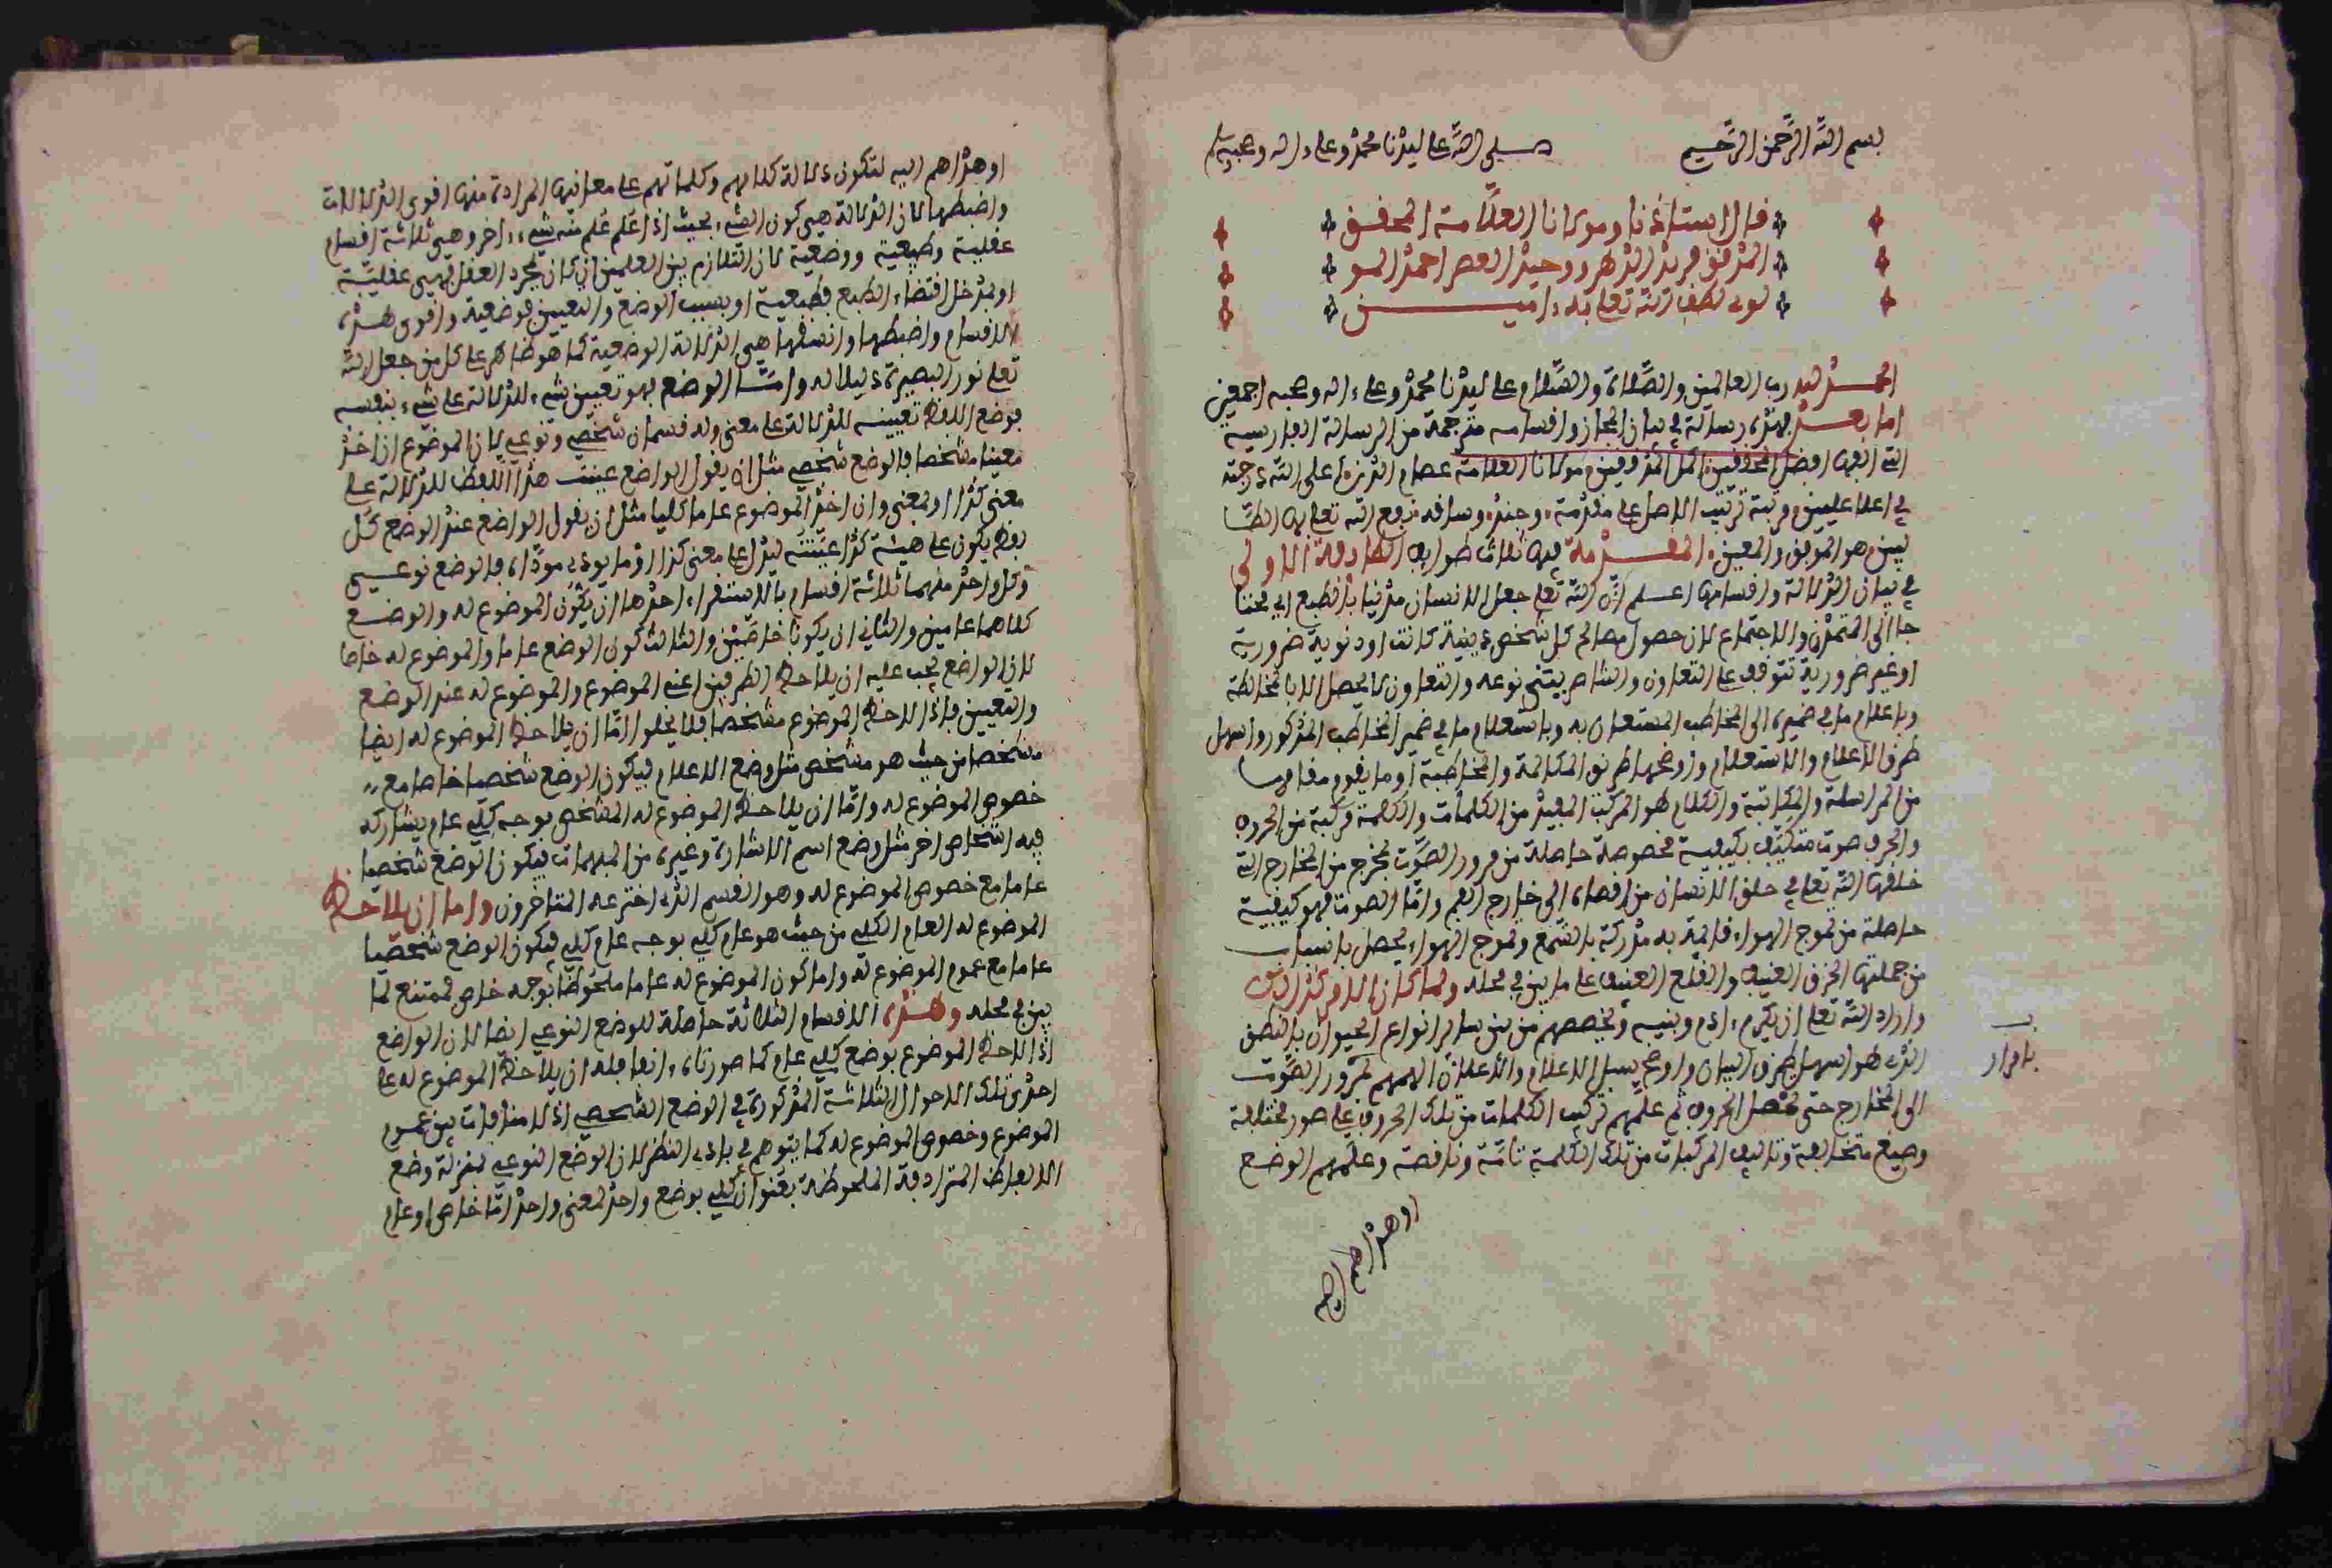 بسم الله الرحمن الرحيم صلى الله على سيدنا محمد وعلى اله وصحبه وسلم
قال استاذنا ومولانا العلامة المحقق
المدقق فريد الدهر ووحيد العصر احمد المو
لوي لطف الله تعلى به امين
الحمد لله رب العالمين والصلاة والسلام على سيدنا محمد وعلى اله وصحبه اجمعين
اما بعد فهذه رسالة في بيان المجاز واقسامه مترجمة من الرسالة الفارسية
التي الفها افضل المحققين اكمل المدققين مولانا العلامة عصام الدين اعلى الله درجته
في اعلا عليين مرتبة ترتيب الاصل على مقدمة وجند وساقه نفع الله تعلى بها الطا
لبين وهو الموفق والمعين المقدمة فيها ثلاث طوايف الطايفة الاولى
في بيان الدلالة واقسامها اعلم ان الله تعلى جعل الانسان مدنيا بالطبع اي محتا
جا الى التمدن والاجتماع لان حصول مصالح كل شخص دينية كانت او دنوية ضرورية
او غير ضرورية تتوقف على التعاون والتناصر ببني نوعه والتعاون لا يحصل الا بالمخالطة
وباعلام ما في ضميره الى المخاطب المستعان به وباستعلام ما في ضمير المخاطب المذكور واسهل
طرق الاعلام والاستعلام واوضحها طريق المكالمة والمخاطبة او ما يقوم مقامها
من المراسلة والمكاتبة والكلام هو المركب المفيد من الكلمات والكلمة مركبة من الحروف
والحرف صوت متكيف بكيفية مخصوصة حاصلة من مرور الصوت بمخرج من المخارج التي
خلقها الله تعلى في حلق الانسان من اقصاه الى خارج الفم واما الصوت فهو كيفية
حاصلة من تموج الهواء قائمة به مدركة بالسمع وتموج الهواء يحصل باسباب
من جملتها القرع العنيف والقلع العنيف على ما بين في محله ولما كان الامر كذلك
واراد الله تعلى ان يكرم ادم وبنيه ويخصصهم من بين ساير انواع الحيوان بالنطق
الذي هو اسهل طرق البيان واوضح سبل الاعلام والاعلان الهمهم مرور الصوت
الى المخارج حتى تحصل الحروف ثم علمهم تركيب الكلمات من تلك الحروف على صور مختلفة
وصيغ متخالفة وتاليف المركبات من تلك الكلمة تامة وناقصة وعلمهم الوضع
بافراد
اوهداهم اليه
اوهداهم اليه لتكون دلالة كلامهم وكلماتهم على معانيها المرادة منها اقوى الدلالات
واضبطها لان الدلالة هي كون الشيء بحيث اذا علم علم منه شيء اخر وهي ثلاثة اقسام
عقلية وطبيعية ووضعية لان التلازم بين العلمين ان كان بمجرد العقل فهي عقلية
او بمدخل اقتضاء الطبع فطبيعية او بسبب الوضع والتعيين فوضعية واقوى هذه
الاقسام واضبطها وانفعها هي الدلالة الوضعية كما هو ظاهر على كل من جعل الله
تعلى نور البصيرة دليلا له واما الوضع فهو تعيين شيء للدلالة على شيء بنفسه
فوضع اللفظ تعيينه للدلالة على معنى وله قسمان شخصي ونوعي لان الموضوع ان اخذ
معينا مشخصا فالوضع شخصي مثل ان يقول الواضع عينت هذا اللفظ للدلالة على
معنى كذا او لمعنى وان اخذ الموضوع عاما كليا مثل ان يقول الواضع عند الوضع كل
لفظ يكون على هيئة كذا عينته ليدل على معنى كذا او ما يودي موداه فالوضع نوعي
وكل واحد منهما ثلاثة اقسام بالاستقراء احدها ان يكون الموضوع له والوضع
كلاهما عامين والثاني ان يكونا خاصين والثالث كون الوضع عاما والموضوع له خاصا
لان الواضع يجب عليه ان يلاحظ الطرفين اعني الموضوع والموضوع له عند الوضع
والتعيين فاذا لاحظ الموضوع مشخصا فلا يخلو اما ان يلاحظ الموضوع له ايضا
مشخصا من حيث هو مشخص مثل وضع الاعلام فيكون الوضع شخصيا خاصا مع
خصوص الموضوع له واما ان يلاحظ الموضوع له المشخص بوجه كلي عام يشاركه
فيه اشخاص اخر مثل وضع اسم الاشارة وغيره من المبهمات فيكون الوضع شخصيا
عاما مع خصوص الموضوع له وهو القسم الذي اخترعه المتاخرون واما ان يلاحظ
الموضوع له العام الكلي من حيث هو عام كلي بوجه عام كلي فيكون الوضع شخصيا
عاما مع عموم الموضوع له واما كون الموضوع له عاما ملحوظا بوجه خاص فممتنع لما
بين في محله وهذه الاقسام الثلاثة حاصلة للوضع النوعي ايضا لان الواضع
اذا لاحظ الموضوع بوضع كلي عام كما صورناه انفا فله ان يلاحظ الموضوع له على
احدى تلك الاحوال الثلاثة المذكورة في الوضع الشخصي اذ لا منافات بين عموم
الموضوع وخصوص الموضوع له كما يتوهم في بادي النظر لان الوضع النوعي بمنزلة وضع
الالفاظ المترادفة الملحوظة بعنوان كلي بوضع واحد لمعنى واحد اما خاص او عام